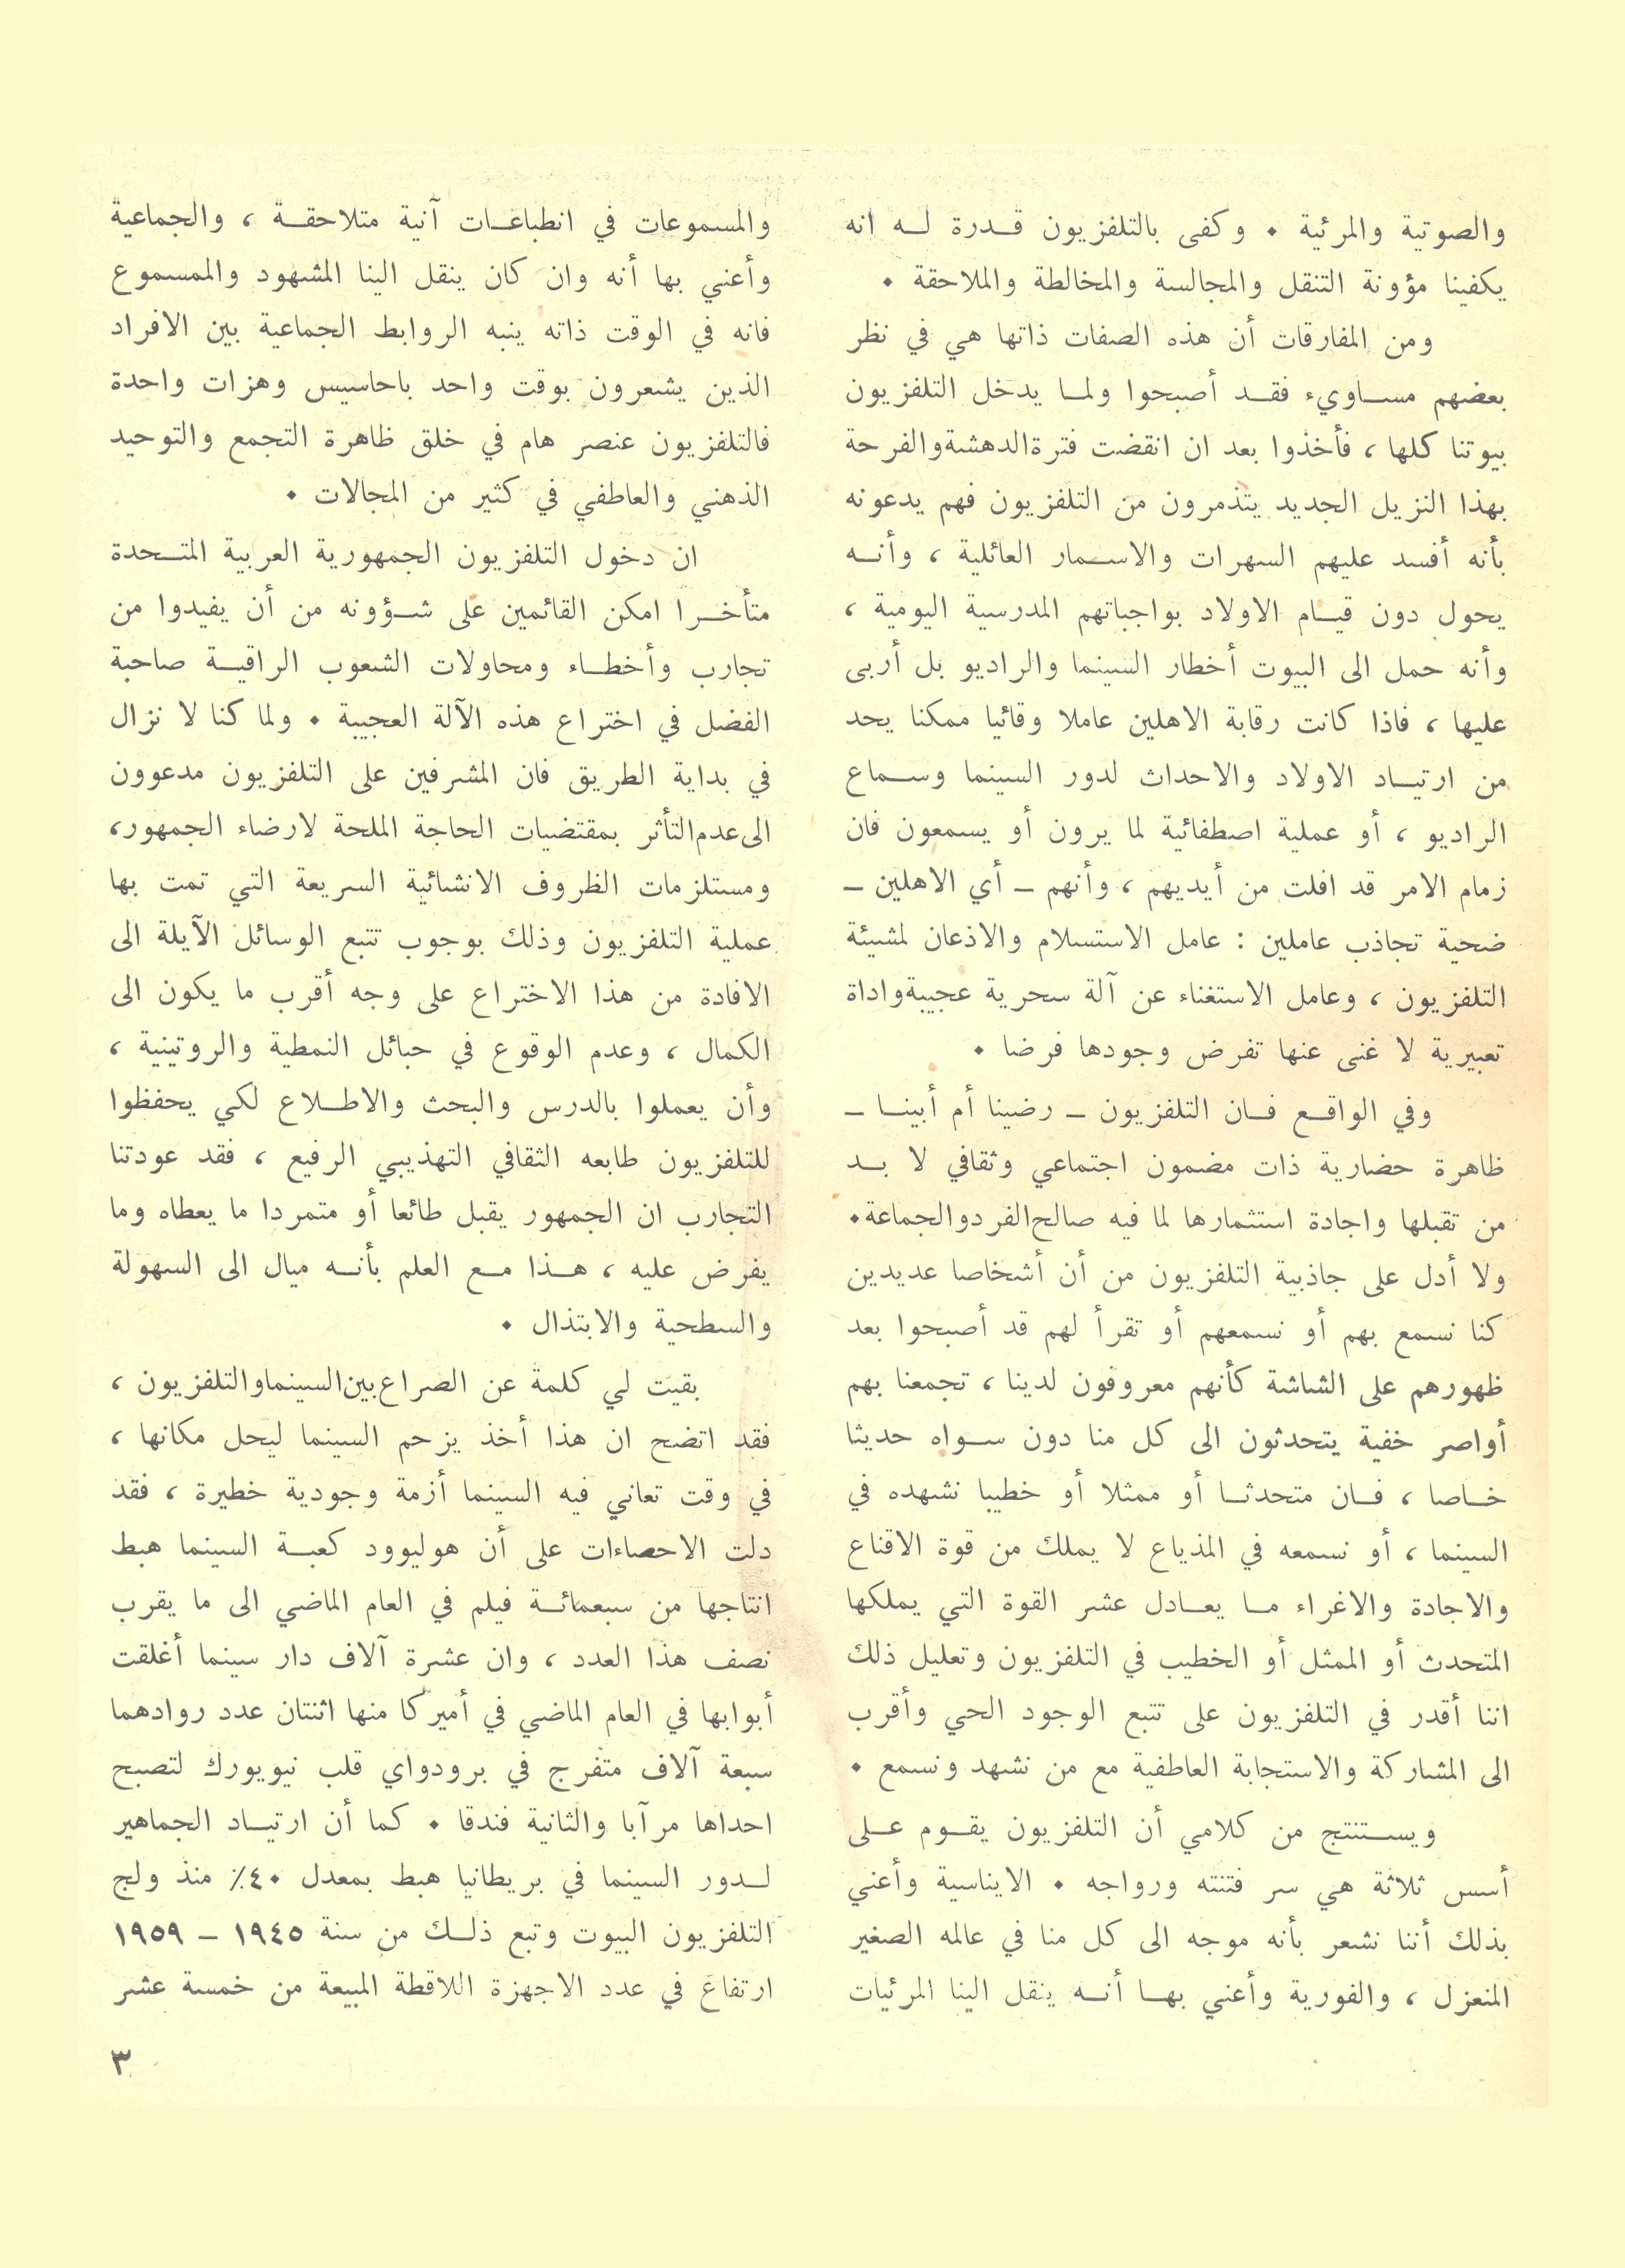 والصوتية والمرئية ٠ وكفى بالتلفزيون قدرة له انه
يكفينا مؤونة التنقل والمجالسة والمخالطة والملاحقة ٠
ومن المفارقات أن هذه الصفات ذاتها هي في نظر
بعضهم مساويء فقد أصبحوا ولما يدخل التلفزيون
بيوتنا كلها ، فأخذوا بعد ان انقضت فترة الدهشة والفرحة
بهذا النزيل الجديد يتذمرون من التلفزيون فهم يدعونه
بأنه أفسد عليهم السهرات والاسمار العائلية ، وأنه
يحول دون قيام الاولاد بواجباتهم المدرسية اليومية ،
وأنه حمل الى البيوت أخطار السينما والراديو بل أربى
عليها ، فاذا كانت رقابة الاهلين عاملا وقائيا ممكنا يحد
من ارتياد الاولاد والاحداث لدور السينما وسماع
الراديو ، أو عملية اصطفائية لما يرون أو يسمعون فان
زمام الامر قد افلت من أيديهم ، وأنهم ــ أي الاهلين ــ
ضحية تجاذب عاملين : عامل الاستسلام والاذعان لمشيئة
التلفزيون ، وعامل الاستغناء عن آلة سحرية عجيبة واداة
تعبيرية لا غنى عنها تفرض وجودها فرضا ٠
وفي الواقع فان التلفزيون ــ رضينا أم أبينا ــ
ظاهرة حضارية ذات مضمون اجتماعي وثقافي لا بد
من تقبلها واجادة استثمارها لما فيه صالح الفرد والجماعة٠
ولا أدل على جاذبية التلفزيون من أن أشخاصا عديدين
كنا نسمع بهم أو نسمعهم أو تقرأ لهم قد أصبحوا بعد
ظهورهم على الشاشة كأنهم معروفون لدينا ، تجمعنا بهم
أواصر خفية يتحدثون الى كل منا دون سواه حديثا
خاصا ، فان متحدثا أو ممثلا أو خطيبا نشهده في
السينما ، أو نسمعه في المذياع لا يملك من قوة الاقناع
والاجادة والاغراء ما يعادل عشر القوة التي يملكها
المتحدث أو الممثل أو الخطيب في التلفزيون وتعليل ذلك
اننا أقدر في التلفزيون على تتبع الوجود الحي وأقرب
الى المشاركة والاستجابة العاطفية مع من نشهد ونسمع ٠
ويستنتج من كلامي أن التلفزيون يقوم على
أسس ثلاثة هي سر فتنته ورواجه ٠ الايناسية وأعني
بذلك أننا نشعر بأنه موجه الى كل منا في عالمه الصغير
المنعزل ، والفورية وأعني بها أنه ينقل الينا المرئيات
والمسموعات في انطباعات آنية متلاحقة ، والجماعية
وأعني بها أنه وان كان ينقل الينا المشهود والمسموع
فانه في الوقت ذاته ينبه الروابط الجماعية بين الافراد
الذين يشعرون بوقت واحد باحاسيس وهزات واحدة
فالتلفزيون عنصر هام في خلق ظاهرة التجمع والتوحيد
الذهني والعاطفي في كثير من المجالات ٠
ان دخول التلفزيون الجمهورية العربية المتحدة
متأخرا امكن القائمين على شؤونه من أن يفيدوا من
تجارب وأخطاء ومحاولات الشعوب الراقية صاحبة
الفضل في اختراع هذه الآلة العجيبة ٠ ولما كنا لا نزال
في بداية الطريق فان المشرفين على التلفزيون مدعوون
الى عدم التأثر بمقتضيات الحاجة الملحة لارضاء الجمهور،
ومستلزمات الظروف الانشائية السريعة التي تمت بها
عملية التلفزيون وذلك بوجوب تتبع الوسائل الآيلة الى
الافادة من هذا الاختراع على وجه أقرب ما يكون الى
الكمال ، وعدم الوقوع في حبائل النمطية والروتينية ،
وأن يعملوا بالدرس والبحث والاطلاع لكي يحفظوا
للتلفزيون طابعه الثقافي التهذيبي الرفيع ، فقد عودتنا
التجارب ان الجمهور يقبل طائعا أو متمردا ما يعطاه وما
يفرض عليه ، هذا مع العلم بأنه ميال الى السهولة
والسطحية والابتذال ٠
بقيت لي كلمة عن الصراع بين السينما والتلفزيون ،
فقد اتضح ان هذا أخذ يزحم السينما ليحل مكانها ،
في وقت تعاني فيه السينما أزمة وجودية خطيرة ، فقد
دلت الاحصاءات على أن هوليوود كعبة السينما هبط
انتاجها من سبعمائة فيلم في العام الماضي الى ما يقرب
نصف هذا العدد ، وان عشرة آلاف دار سينما أغلقت
أبوابها في العام الماضي في أميركا منها اثنتان عدد روادهما
سبعة آلاف متفرج في برودواي قلب نيويورك لتصبح
احداها مرآبا والثانية فندقا ٠ كما أن ارتياد الجماهير
لدور السينما في بريطانيا هبط بمعدل ٤٠٪ منذ ولج
التلفزيون البيوت وتبع ذلك من سنة ١٩٤٥ ــ ١٩٥٩
ارتفاع في عدد الاجهزة اللاقطة المبيعة من خمسة عشر
٣